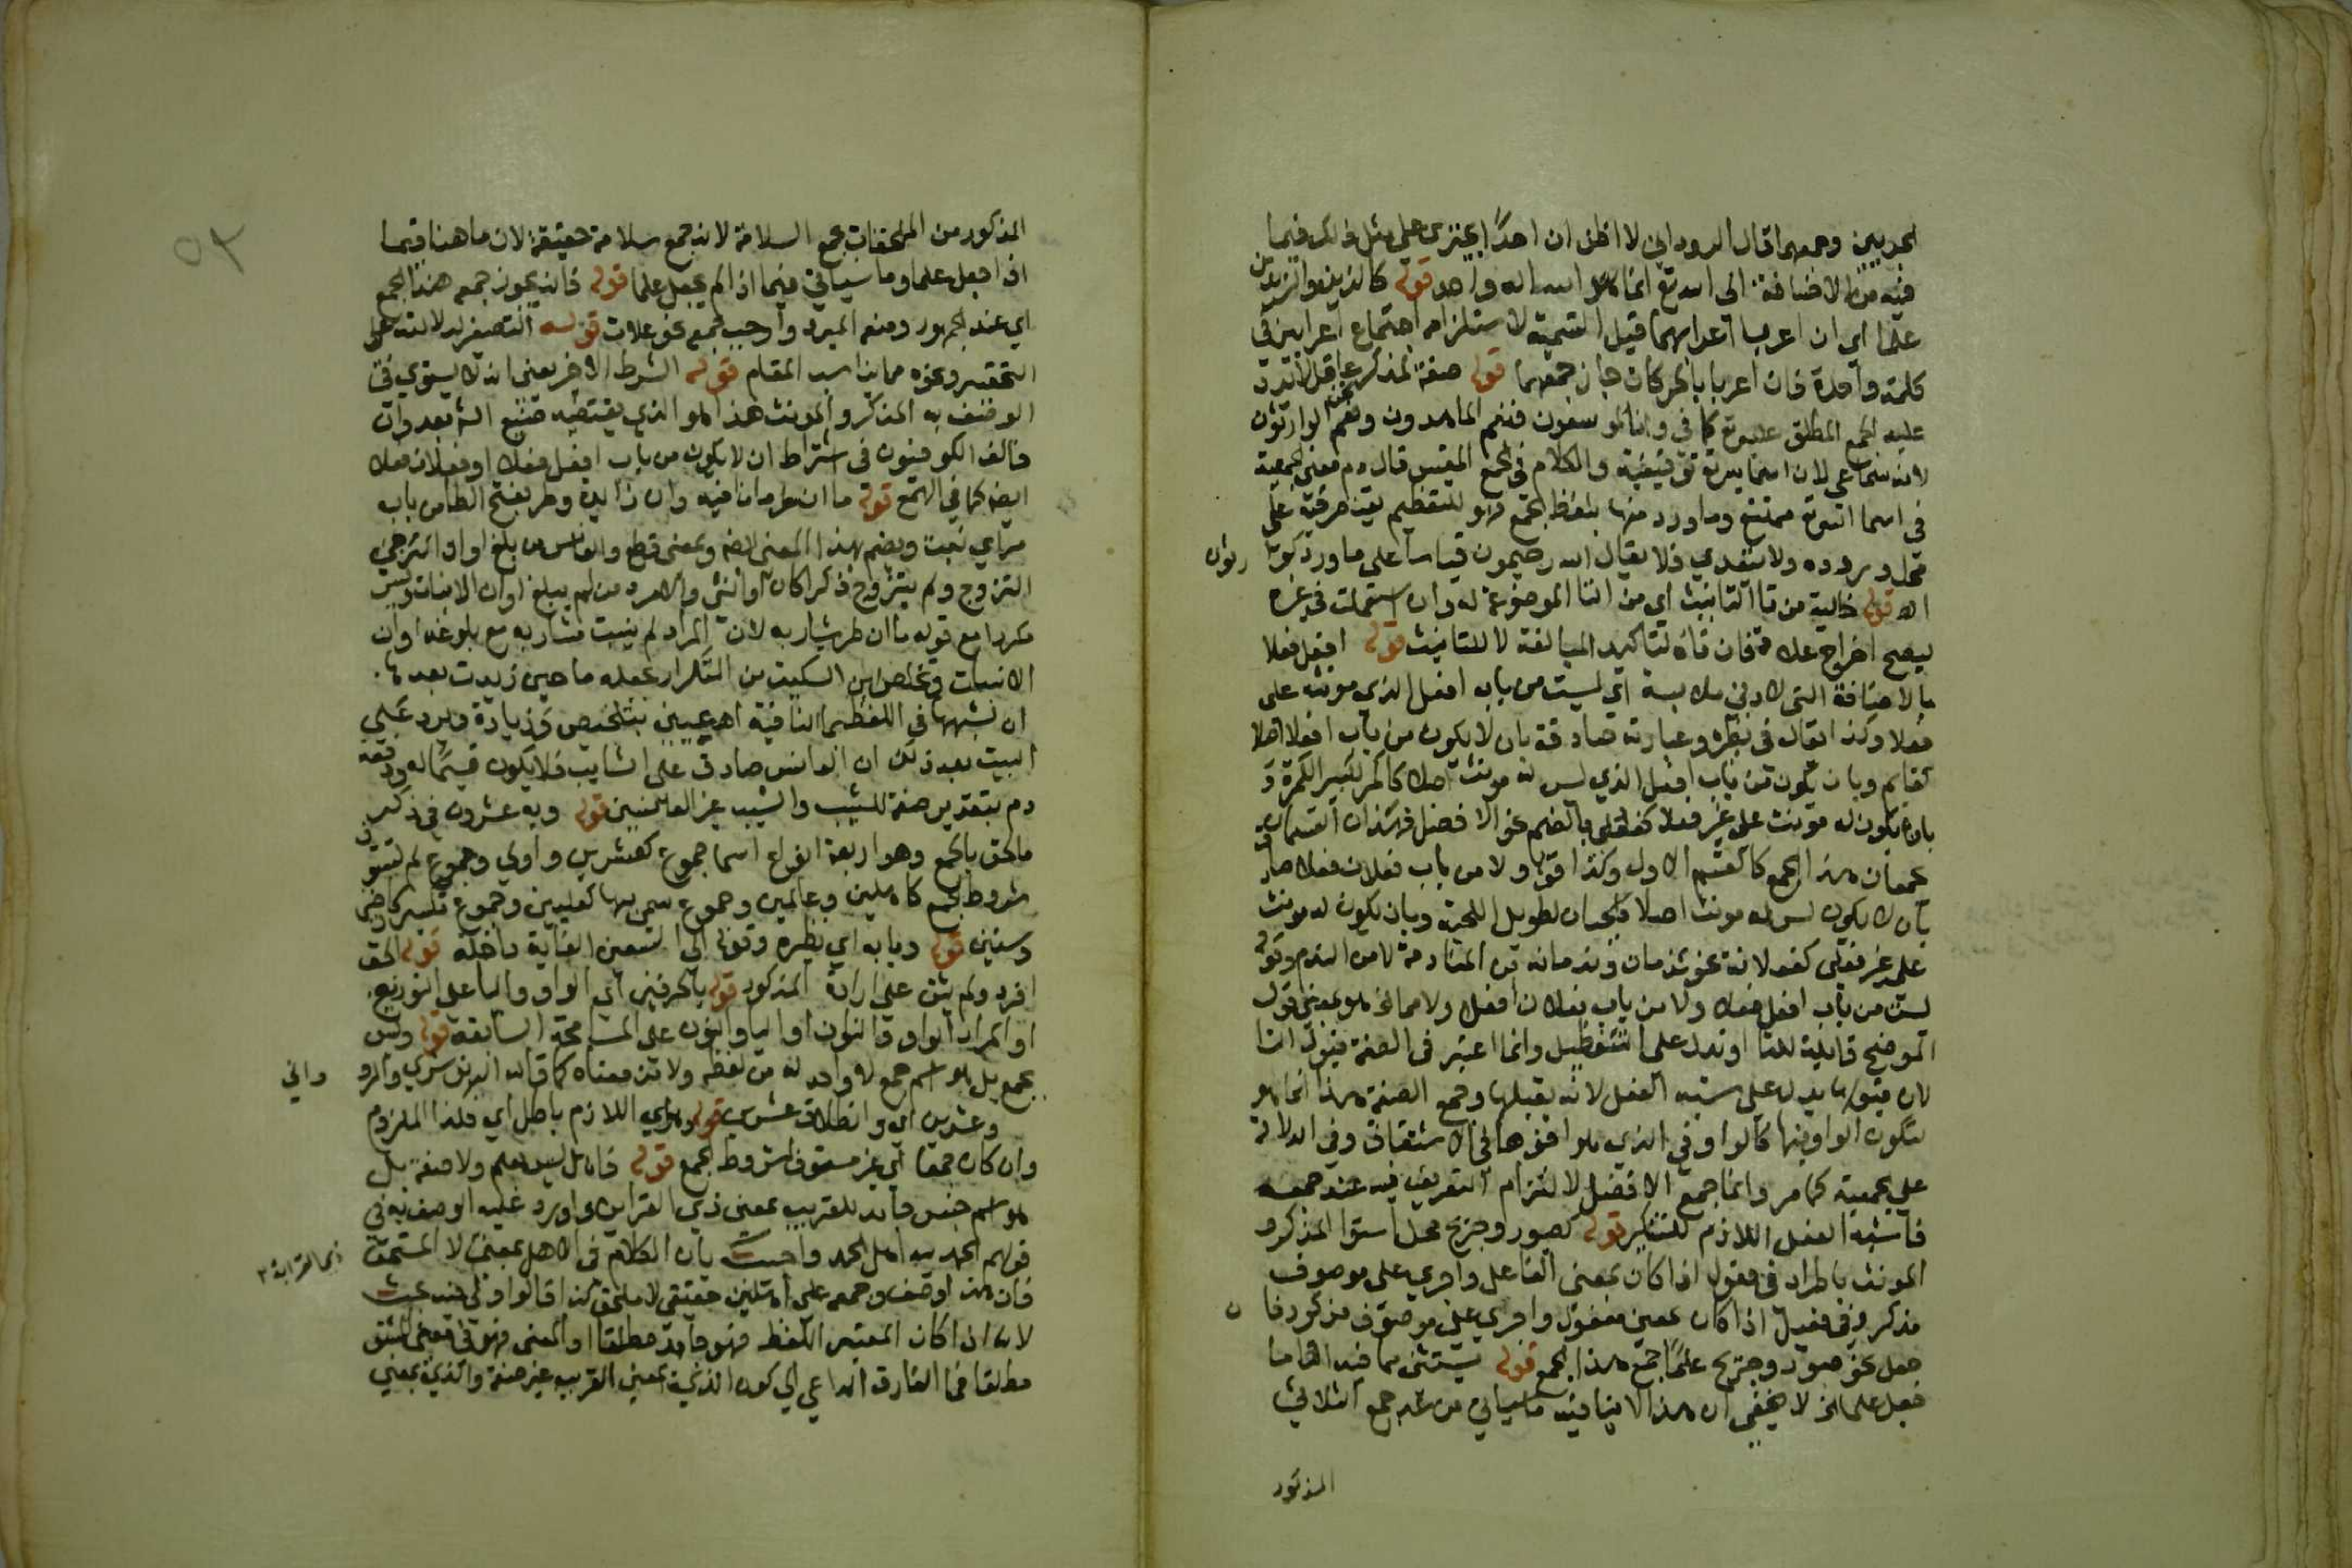 فيه من الاضافة الى الله تع انما هو الله اله واحد قوله كالزيدين والزيدين
علما اي ان اعربا اعرابهما قبل التسمية لاستلزامه اجتماع اعرابين في
كلمة واحدة فان اعربا بالحركات جاز جمعهما قوله صفة لمذكر عاقل لا ترد
عليه الجمع المطلق عليه تع كما في وانا لموسعون فنعم الماهدون ونحن الوارثون
لانه سماعي لان اسماءه تع توقيفية والكلام في الجمع المقيس قال دم معنى الجمعية
في اسما الله تع ممتنع وما ورد منها بلفظ الجمع فهو للتعظيم يقتصر فيه على
محل وروده ولا يتعدى فلا يقال الله رحيمون قياسا على ما ورد كوارثون
اه قوله خالية من تا التانيث اي من التا الموضوعة له وان استعملت في غيره
ليصح اخراج علامة فان تاه لتاكيد المبالغة لا للتانيث قوله افعل فعلا
بالاضافة التي لادنى ملابسة اي ليست من باب افعل الذي مونثه على
فعلا وكذا يقال في نظيره وعبارته صادقة بان لا يكون من باب افعل اصلا
كقايم وبان يكون من باب افعل الذي ليس له مونث اصلا كاكمر لكبير الكمرة و
بان يكون له مونث على غير فعلا كفعلى بالضم نحو الافضل فهذان القسمان
يجمعان هذا الجمع كالقسم الاول وكذا قوله ولا من باب فعلان فعلى صادق
بان لا يكون ليس له مونث اصلا كلحيان لطويل اللحية وبان يكون له مونث
على غير فعلى كفعلانة نحو ندمان وندمانة من المنادمة لا من الندم وقوله
ليست من باب افعل فعلاء ولا من باب فعلان فعلى ولا مما الخ هو بمعنى قول
الموضح قابلة للتا او تدل على التفضيل وانما اعتبر في الصفة قبول التا
لان قبولها يدل على شبه الفعل لانه يقبلها وجمع الصفة هذا انما هو
لتكون الواو فيها كالواو في الذي هو افقها في الاشتقاق وفي الدلالة
على الجمعية كما مر وانما جمع الافضل لالتزام التعريف فيه عند جمعه
فاشبه الفعل اللازم للتنكير قوله كصبور وجريح محل استوا المذكر و
المونث باطراد في فعول اذا كان بمعنى الفاعل واجري على موصوف
مذكور وفي فعيل اذا كان بمعنى مفعول واجري على موصوف مذكور فان
جعل نحو صبور وجريح علما جمع هذا الجمع قوله يستثنى مما فيه التا ما
جعل علما الخ لا يخفى ان هذا لا ينافيه ما سياتي من عد جمع الثلاثي
المذكور
٥٢
المذكور من الملحقات بجمع السلامة لانه جمع سلامة حقيقة لان ما هنا فيما
اذا جعل علما وما سياتي فيما اذا لم يجعل علما قوله فانه يجوز جمعه هذا الجمع
اي عند الجمهور ومنعه المبرد واوجب جمعه نحو علات قوله التصغير لدلالته على
التحقير ونحوه مما يناسب المقام قوله الشرط الاخير يعني انه لا يستوي في
الوصف به المذكر والمونث هذا هو الذي يقتضيه صنيع الش بعد وان
خالف الكوفيون في اشتراط ان لا يكون من باب افعل فعلا او فعلان فعلى
ايضا كما في الهمع قوله ما ان طر ما نافية وان زائدة وطر بفتح الطا من باب
مر اي نبت وبضم بهذا المعنى ايضا وبمعنى قطع والعانس من بلغ اوان
التزوج ولم يتزوج ذكرا كان او انثى والامرد من لم يبلغ اوان الانبات وليس
مكررا مع قوله ما ان طر شاربه لان المراد لم ينبت شاربه مع بلوغه اوان
الانبات وتخلص ابن السكيت من التكرار بجعله ما حين زيدت بعدها
ان لشبهها في اللفظ بما النافية اه عيني بتلخيص وزيادة ويرد على
البيت بعد ذلك ان العانس صادق على الشايب فلا يكون قسيما له ودفعه
دم بتقدير صفة للشيب والشيب غير العانسين قوله وبه عشرون في ذكر
ما الحق بالجمع وهو اربعة انواع اسما جموع كعشرين واولي وجموع لم تستوف
شروط الجمع كاهلين وعالمين وجموع سمي بها كعليين وجموع تكسير كارضين
وسنين قوله وبابه اي نظيره وقوله الى التسعين الغاية داخلة قوله الحق
افرد ولم يثن على ارادة المذكور قوله بالحرفين اي الواو واليا على التوزيع
او المراد الواو والنون او اليا والنون على المسامحة السابقة قوله وليس
بجمع بل هو اسم جمع لا واحد له من لفظه ولا من معناه كما قاله الدنوشري والرو
داني
وعشرين اي وانطلاق عشرين قوله وهذا اللازم باطل اي فكذا الملزوم
وان كان جمعا اي غير مستوف لشروط الجمع قوله فاهل ليس بعلم ولا صفة بل
هو اسم جنس جامد للقريب بمعنى ذي القرابة واورد عليه الوصف به في
قولهم الحمد لله اهل الحمد واجيب بان الكلام في الاهل بمعنى لا المستحق
ذي القرابة
فان هذا وصف وجمعه على اهلين حقيقي لا ملحق كذا قالوا ولي فيه بحث
لانه ان كان المعتبر اللفظ فهو جامد مطلقا او المعنى فهو في معنى المشتق
مطلقا فما الفارق الداعي الى كون الذي بمعنى القريب غير صفة والذي بمعنى